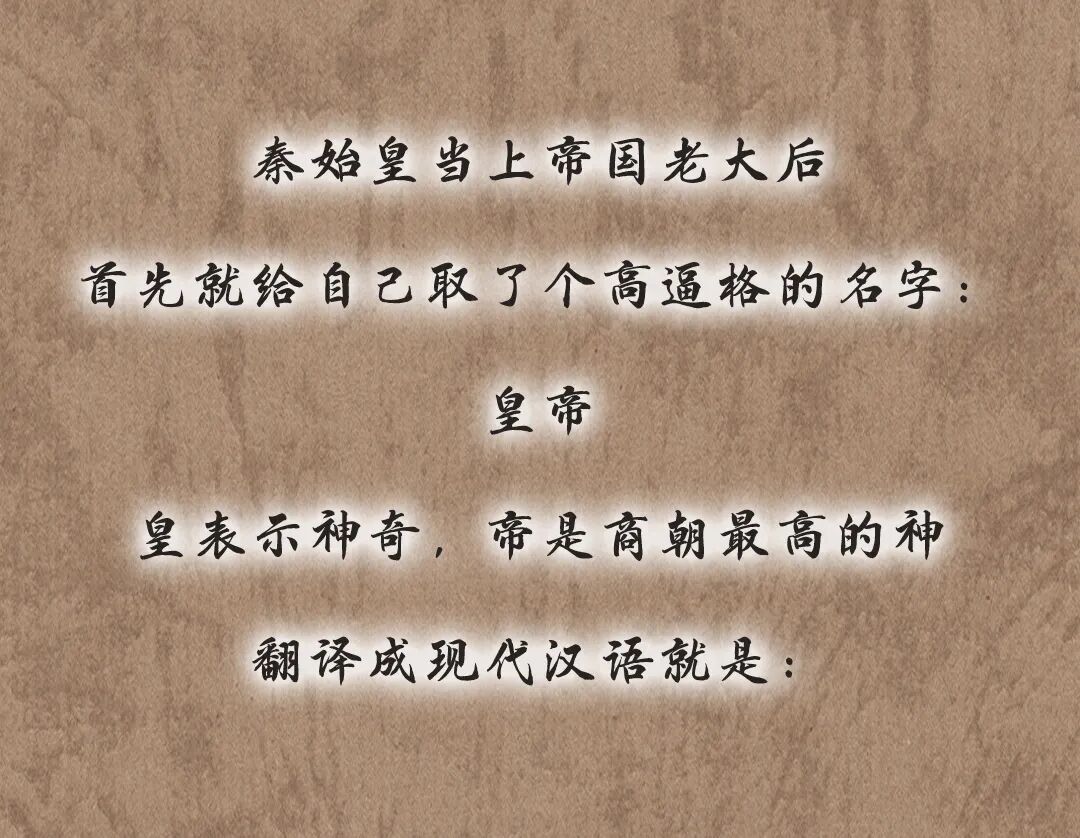 秦始皇当上帝国老大后
首先就给自己取了个高逼格的名字：
皇帝
皇表示神奇，帝是商朝最高的神
翻译成现代汉语就是：